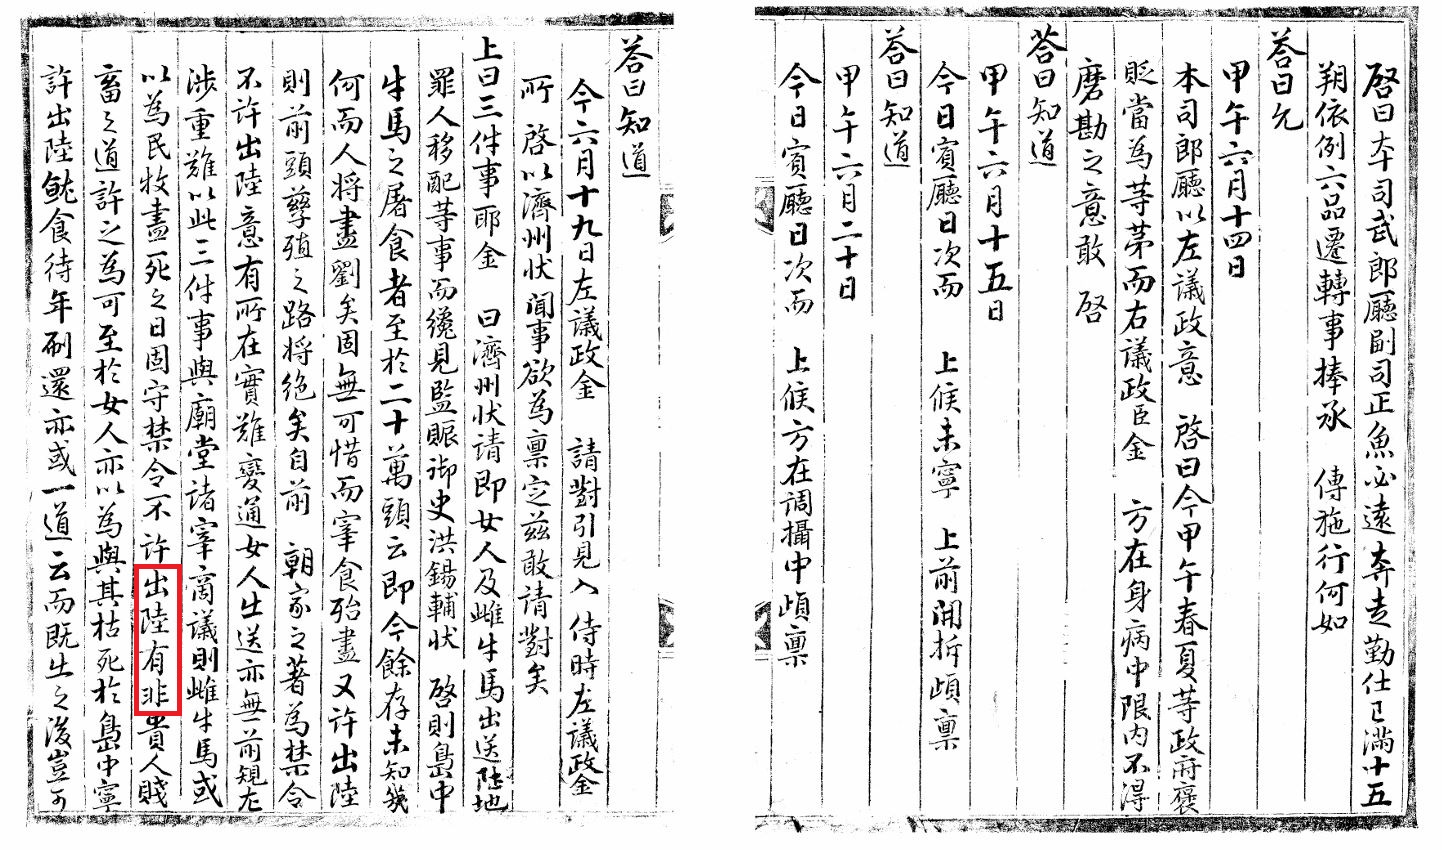 啓曰本司武郎廳副司正魚必遠奔走勤仕已滿十五
朔依例六品遷轉事捧承 傳施行何如
答曰允
甲午六月十四日
本司郎廳以左議政意 啓曰今甲午春夏等政府褒
貶當為等第而右議政臣金 方在身病中限內不得
磨勘之意敢 啓
答曰知道
甲午六月十五日
今日賓廳日次而 上候未寧 上前開拆頉稟
答曰知道
甲午六月二十日
今日賓廳日次而 上候方在調攝中頉稟
答曰知道
今六月十九日左議政金 請對引見入 侍時左議政金
所 啓以濟州狀聞事欲為稟定玆敢請對矣
上曰三件事耶金 曰濟州狀請即女人及雌牛馬出送陸地
罪人移配等事而纔見監賑御史洪錫輔狀 啓則島中
牛馬之屠食者至於二十萬頭云即今餘存未知幾
何而人將盡劉矣固無可惜而宰食殆盡又許出陸
則前頭孳殖之路將絕矣自前 朝家之著為禁令
不許出陸意有所在實難變通女人出送亦無前規尤
涉重難以此三件事與廟堂諸宰商議則雌牛馬或
以為民牧盡死之日固守禁令不許出陸有非貴人賤
畜之道許之為可至於女人亦以為與其枯死於島中寧
許出陸就食待年刷還亦或一道云而旣出之後豈可